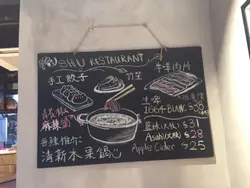 SHU RESTAURANT
手工餃子
竹笙
牛拼肉片
生啤
1664 BLANC
麻辣
藍妹(大) $31
Asahi(大) $28
Apple Cider $25
特別推介:
清新水果鍋